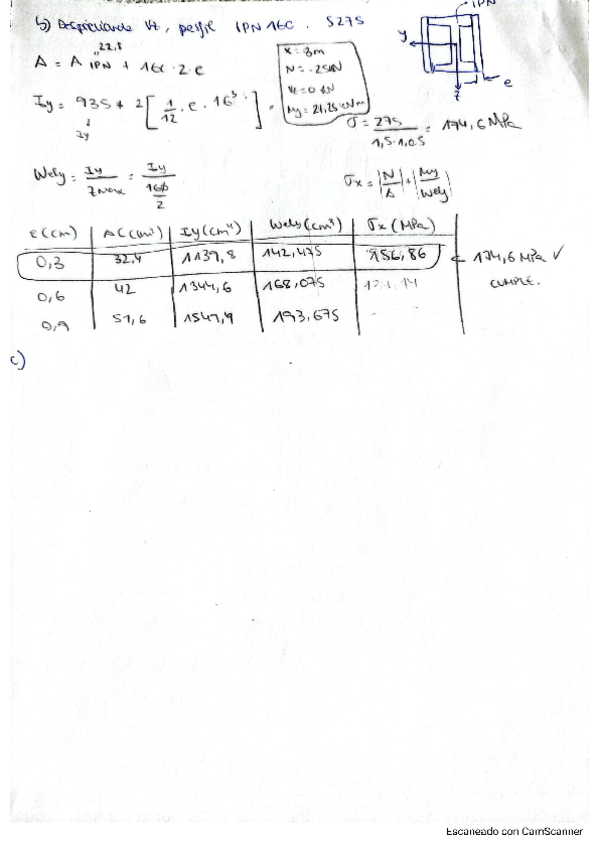 b) Despreciando Vz, perfil IPN 160. S275
IPN
y
e
z
22,8
A = A IPN + 16 · 2 · e
x = 3m
N = -25kN
Vz = 0 kN
My = 21,25 kNm
Iy = 935 + 2 [ 1/12 · e · 16³ ]
Iy
σ = 275 / 1,5·1,05 = 174,6 MPa
Wely = Iy / Zmax = Iy / 160/2
σx = |N/A| + |My/Wely|
e(cm) A(cm²) Iy(cm⁴) Wely(cm³) σx(MPa)
0,3 32,4 1139,8 142,475 156,86 174,6 MPa ✓
0,6 42 1344,6 168,075 CUMPLE.
0,9 51,6 1549,4 193,675
c)
Escaneado con CamScanner